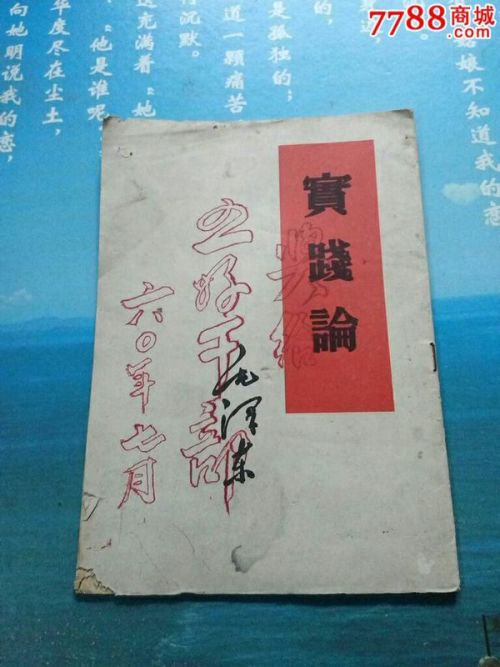 7788商城
姑娘不知道我的恋
是孤独的；
道一颗痛苦
行沉默。
这充满着
她
他是谁呢
华度尽在尘土，
向她明说我的恋，
實踐論
毛澤東
五好干部
六〇年七月